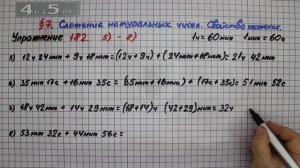 §7. Сложение натуральных чисел. Свойства сложения.
Упражнение 182. 5) - 8) 1ч = 60мин 1мин = 60с
5) 12ч 24мин + 9ч 18мин = (12ч + 9ч) + (24мин + 18мин) = 21ч 42мин
6) 35мин 17с + 16мин 35с = (35мин + 16мин) + (17с + 35с) = 51мин 52с
7) 18ч 42мин + 14ч 29мин = (18+14)ч (42+29)мин = 32ч
8) 53мин 32с + 44мин 56с =